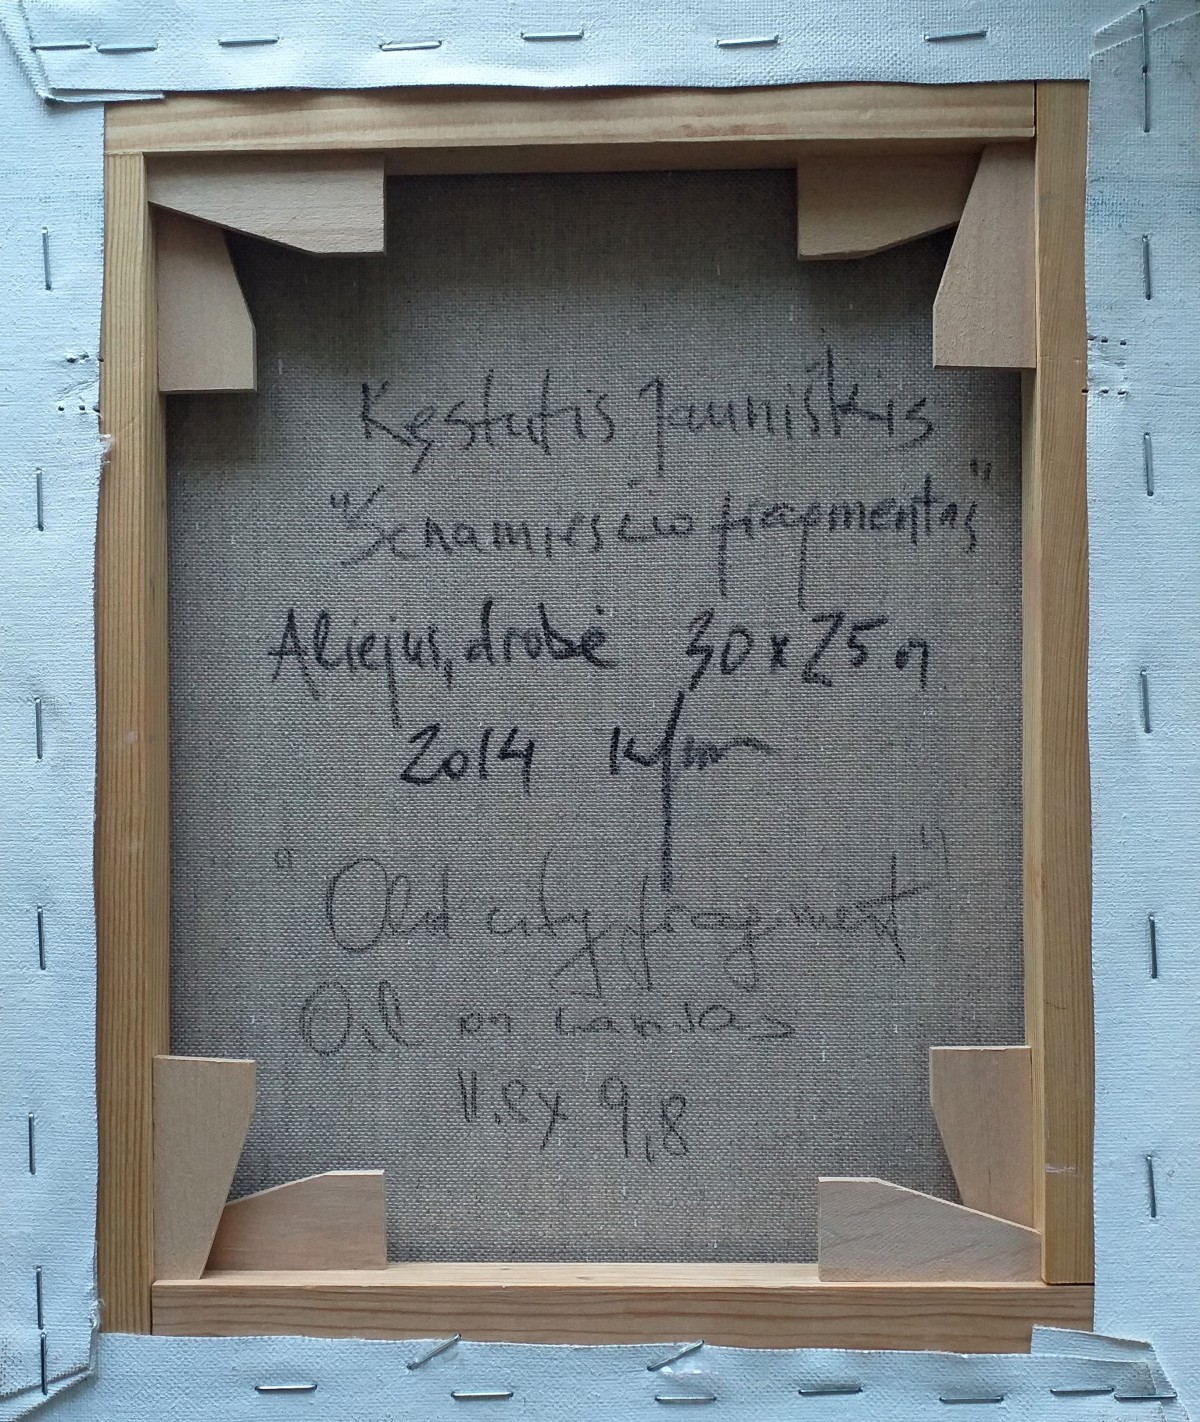 Kęstutis Jauniškis
"Senamiesčio fragmentas"
Aliejus, drobė 30x25cm
2014
"Old city fragment"
Oil on canvas
11.8x9,8